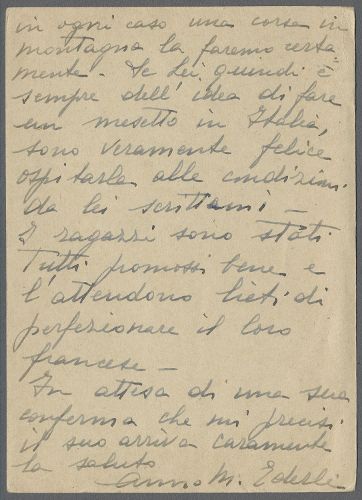 in ogni caso una corsa in
montagna la faremo certa
mente - Se Lei, quindi è
sempre dell'idea di fare
un mesetto in Italia,
sono veramente felice
ospitarla alle condizioni
da lei scrittami -
I ragazzi sono stati
tutti promossi bene e
l'attendono lieti di
perfezionare il loro
francese -
In attesa di una sua
conferma che mi precisi
il suo arrivo caramente
la saluto
Anna M. Ederle